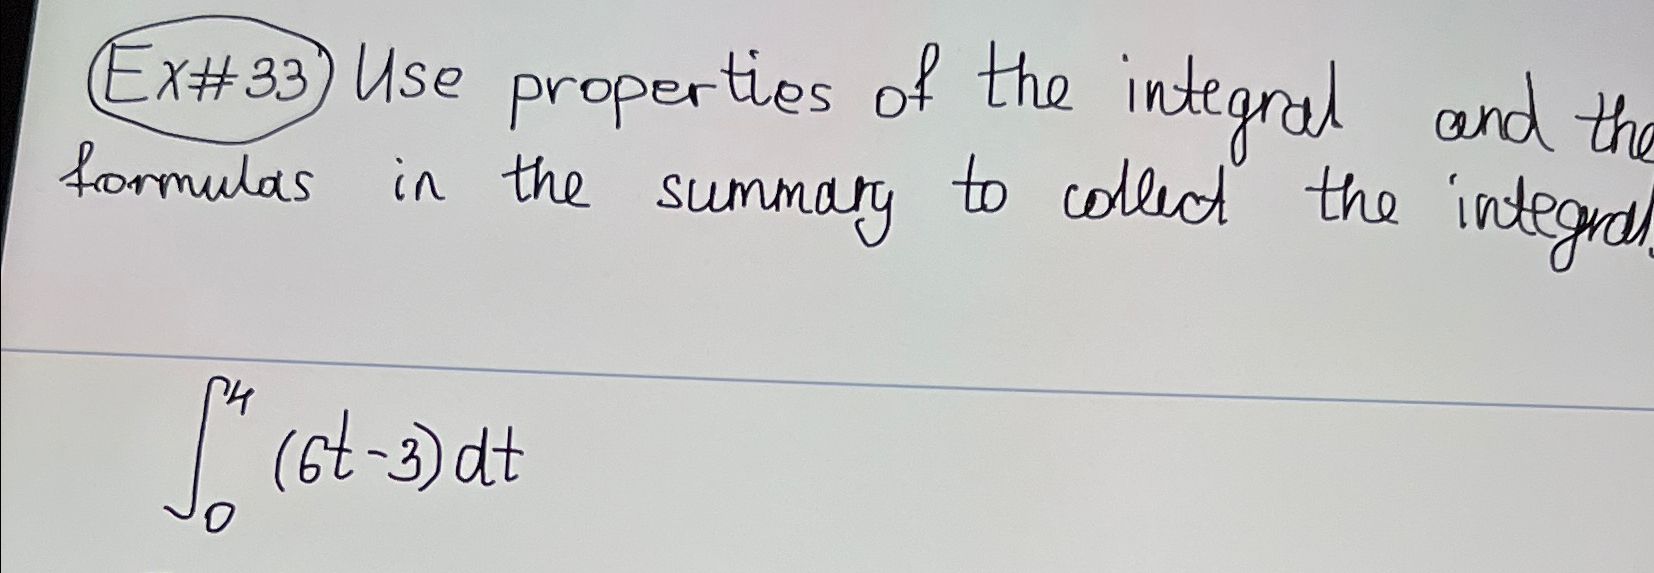 Ex#33 Use properties of the integral and the
formulas in the summary to collect the integral.
∫₀⁴ (6t-3)dt